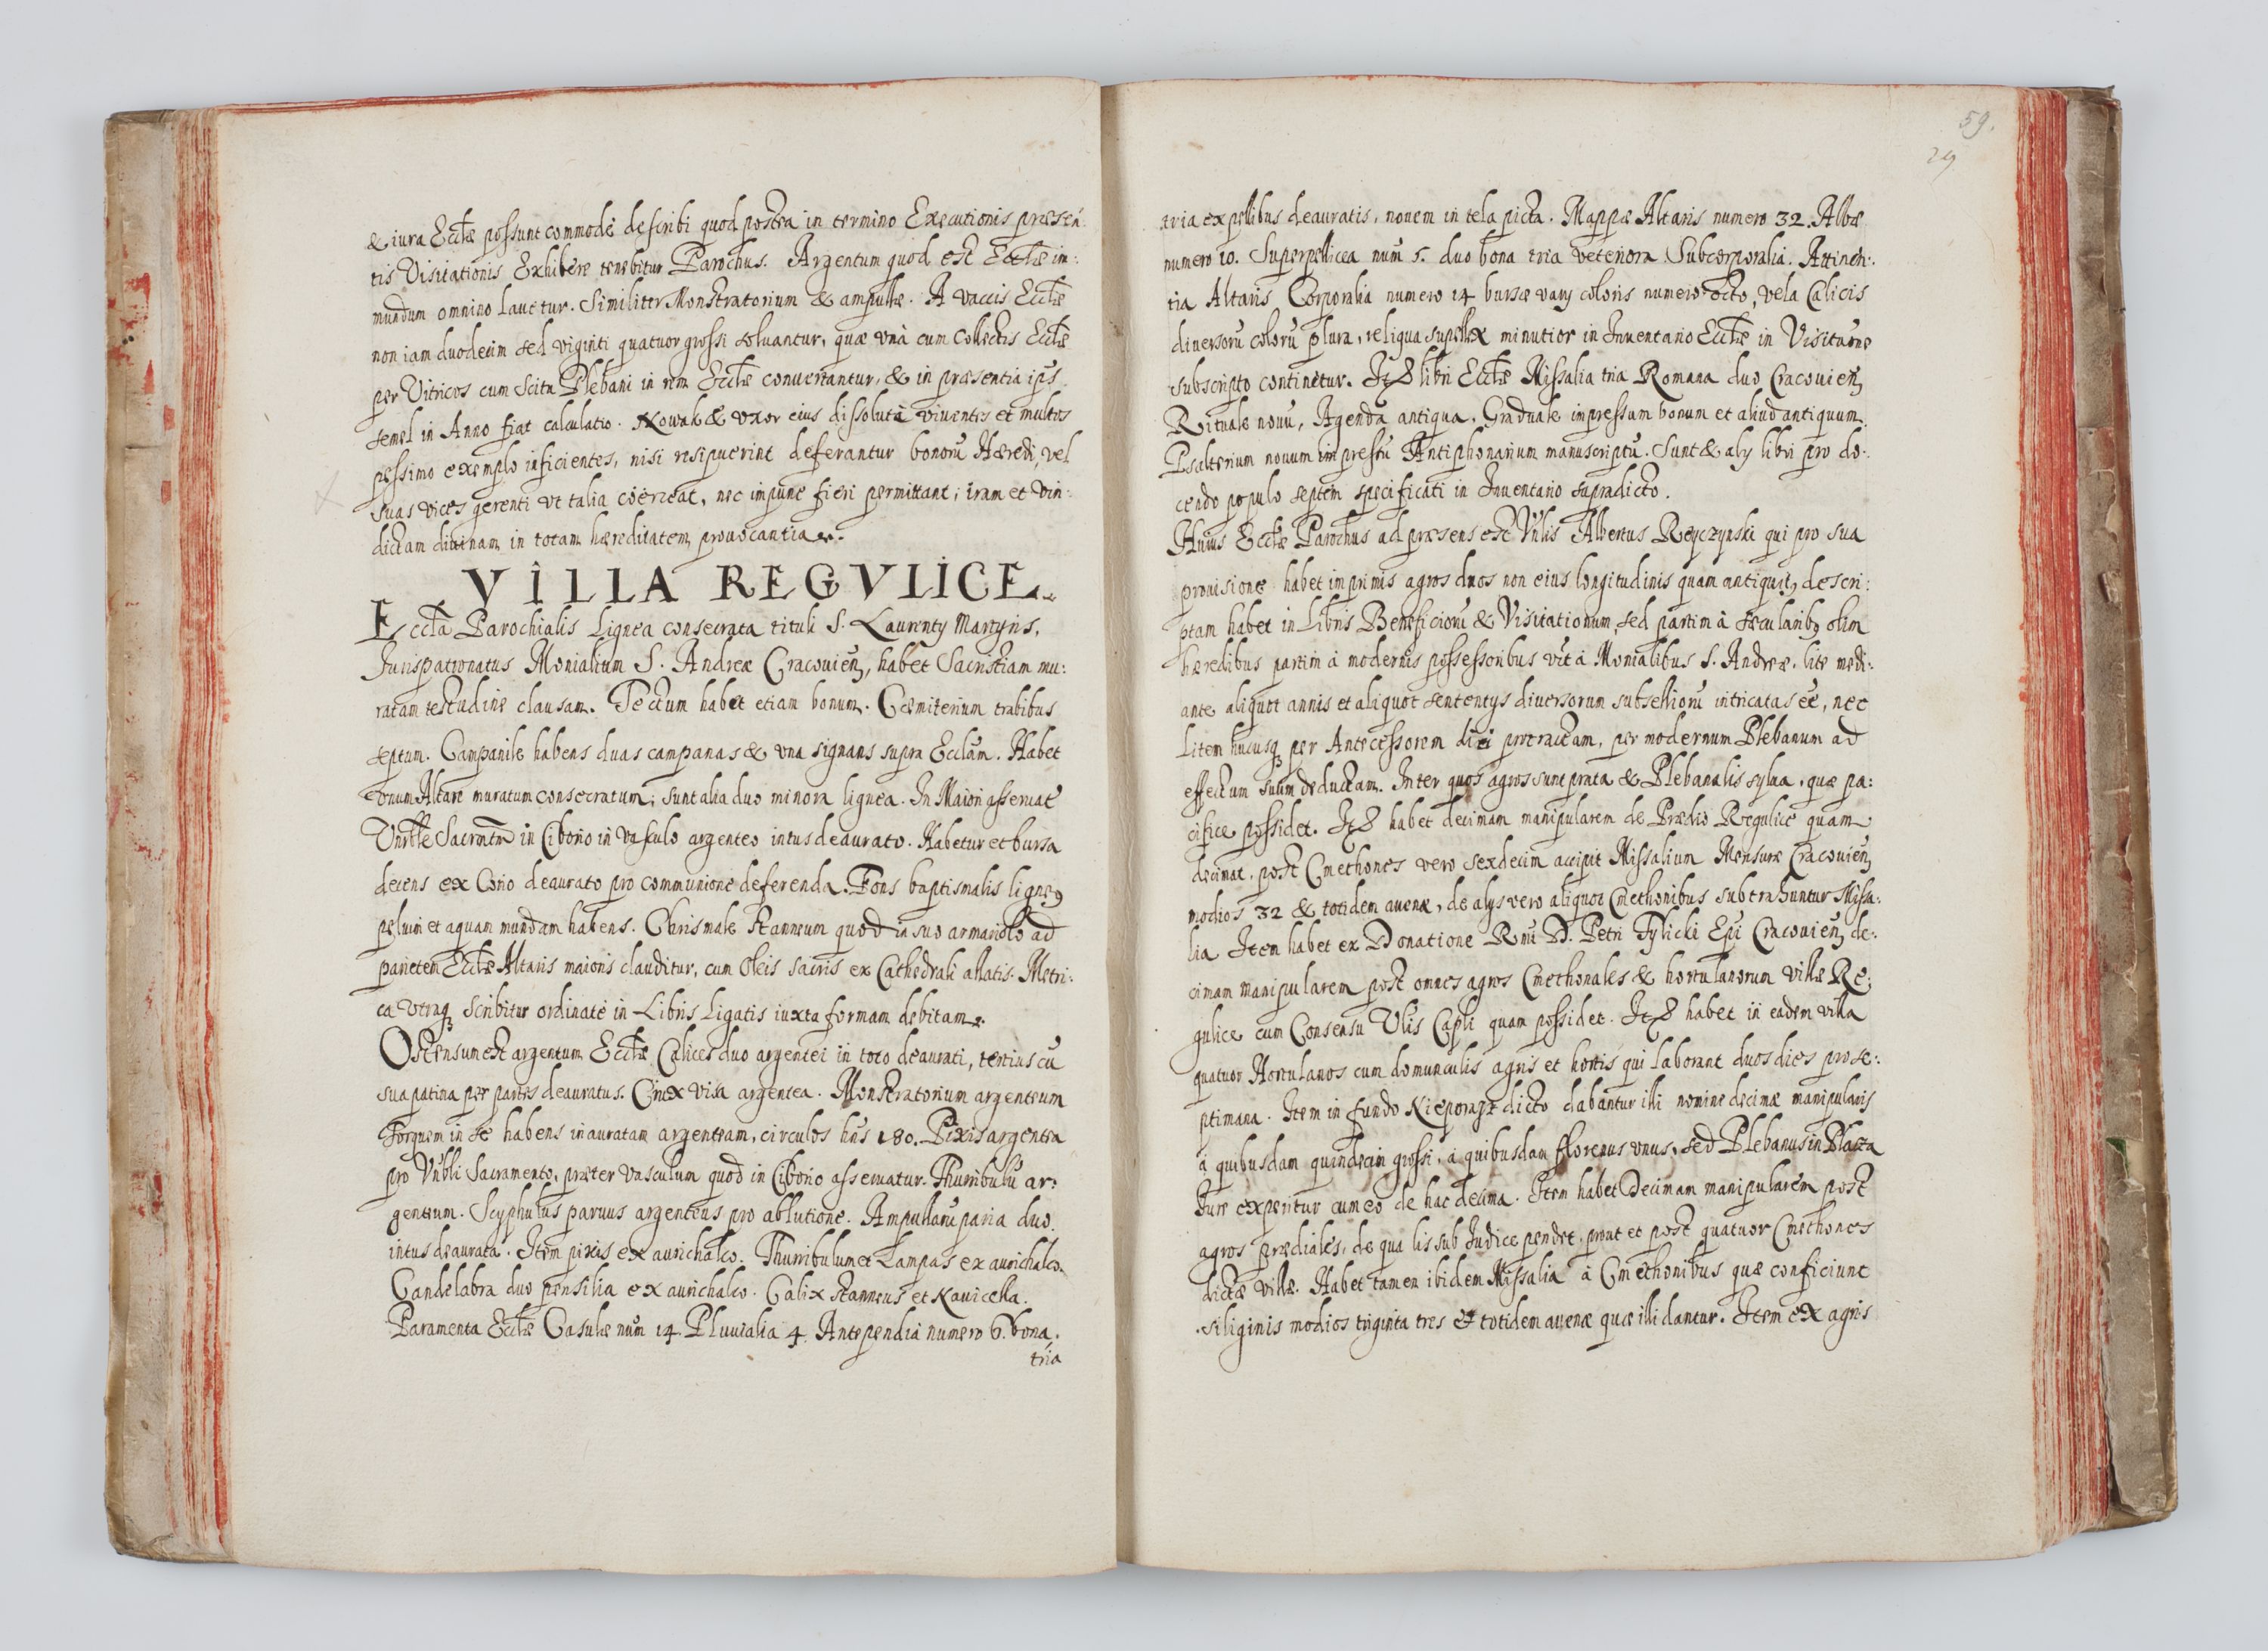 & iura Eccłæ possunt commodè describi quod postea in termino Executionis præsen:
tis Visitationis Exhibere tenebitur Parochus. Argentum quod est Eccłæ im:
mundum omnino lauetur. Similiter Monstratorium & ampullæ. A vaccis Eccłæ
non iam duodecim sed viginti quatuor grossi soluantur, quæ vnà cum Collectis Eccłæ
per Vitricos cum Scitu Plebani in rem Eccłæ conuertantur, & in præsentia ips
semel in Anno fiat calculatio. Nowak & vxor eius dissolutà viuentes et multos
pessimo exemplo inficientes, nisi resipuerint deferantur bonorũ Hæredi, vel
suas vices gerenti vt talia coërceat, nec impune fieri permittant, iram et vin:
dictam diuinam in totam hæreditatem prouocantia.
VILLA REGVLICE.
Eccła Parochialis Lignea consecrata tituli S. Laurenty Martyris,
Jurispatronatus Monialium S. Andreæ Cracouień, habet Sacristiam mu:
ratam testudine clausam. Tectum habet etiam bonum. Cæmiterium trabibus
septum. Campanile habens duas campanas & vna signans supra Ecclam. Habet
vnum Altare muratum consecratum, sunt alia duo minora lignea. In Maiori asseruat
Vnrble Sacrmtm in Ciborio in vasculo argenteo intus deaurato. Habetur et bursa
decens ex Corio deaurato pro communione deferenda. Fons baptismalis ligneus
peluim et aquam mundam habens. Chrismale stanneum quod in suo armariolo ad
parietem Eccłæ Altaris maioris clauditur, cum Oleis sacris ex Cathedrali allatis. Metri:
ca vtraq scribitur ordinatè in Libris Ligatis iuxta formam debitam.
Ostensum est argentum Eccłæ Calices duo argentei in toto deaurati, tertius cũ
sua patina per partes deauratus. Crux vna argentea. Monstratorium argenteum
Torquem in se habens inauratam argenteam, circulos hũs 180. Pixis argentea
pro Vnbli Sacramento, præter vasculum quod in Ciborio asseruatur. Thuribulũ ar:
genteum. Scyphulus paruus argenteus pro ablutione. Ampullarũ paria duo
intus deaurata. Item pixis ex aurichalco. Thurribulum et Lampas ex aurichalco.
Candelabra duo pensilia ex aurichalco. Calix stanneus et Nauicella.
Paramenta Eccłæ Casulæ num 14. Pluuialia 4. Antependia numero 6. bona.
tria
59.
29
tria ex pellibus deauratis, nouem in tela picta. Mappæ Altaris numero 32. Albæ
numero 10. Superpellicea num 5. duo bona tria veteriora Subcorporalia. Attinen:
tia Altaris Corporalia numero 14 bursæ vary coloris numero octo, vela Calicis
diuersorũ colorũ plura, reliqua supellex minutior in Inuentario Eccłæ in Visituone
subscripto continetur. Itē libri Eccłæ Missalia tria Romana duo Cracouień
Rituale nouũ, Agenda antiqua. Graduale impressum bonum et aliud antiquum
Psalterium nouum impressũ Antiphonarium manuscriptũ. Sunt & aly libri pro do:
cendo populo septem specificati in Inuentario supradicto.
Huius Eccłæ Parochus ad præsens est Vnlis Albertus Reyczynski qui pro sua
prouisione habet imprimis agros duos non eius longitudinis quam antiquitus descri:
ptam habet in Libris Beneficiorũ & Visitationum, sed partim à secularib9 olim
hæredibus partim à modernis possessoribus vīt à Monialibus S. Andreæ, lite medi:
ante aliquot annis et aliquot sententys diuersorum subselliorũ intricatas eē, nec
Litem hucusq per Antecessorem diu protractam, per modernum Plebanum ad
effectum suum deductam. Inter quos agros sunt prata & Plebanalis sylua, quæ pa:
cifice possidet. Itē habet decimam manipularem de Prædio Regulice quam
decimat, post Cmethones vero sexdecim accipit Missalium Mensuræ Cracouień
modios 32 & totidem auenæ, de alys vero aliquot Cmethonibus subtrahuntur Missa:
lia Item habet ex Donatione Rmi D. Petri Tylicki Epi Cracouień de:
cimam manipularem post omnes agros Cmethonales & hortulanorum villæ Re:
gulice cum Consensu Vlis Capli quam possidet. Itē habet in eadem villa
quatuor Hortulanos cum domunculis agris et hortis qui laborant duos dies pro se:
ptimana. Item in fundo Nieporaz dicto dabantur illi nomine decimæ manipularis
à quibusdam quindecim grossi, à quibusdam florenus vnus, sed Plebanus in Plaza
Jure experitur cum eo de hac decima. Item habet Decimam manipularem post
agros prædiales, de qua lis sub Judice pendet, prout et post quatuor Cmethones
dictæ villæ. Habet tamen ibidem Missalia à Cmethonibus quæ conficiunt
siliginis modios triginta tres & totidem auenæ quæ illi dantur. Item ex agris